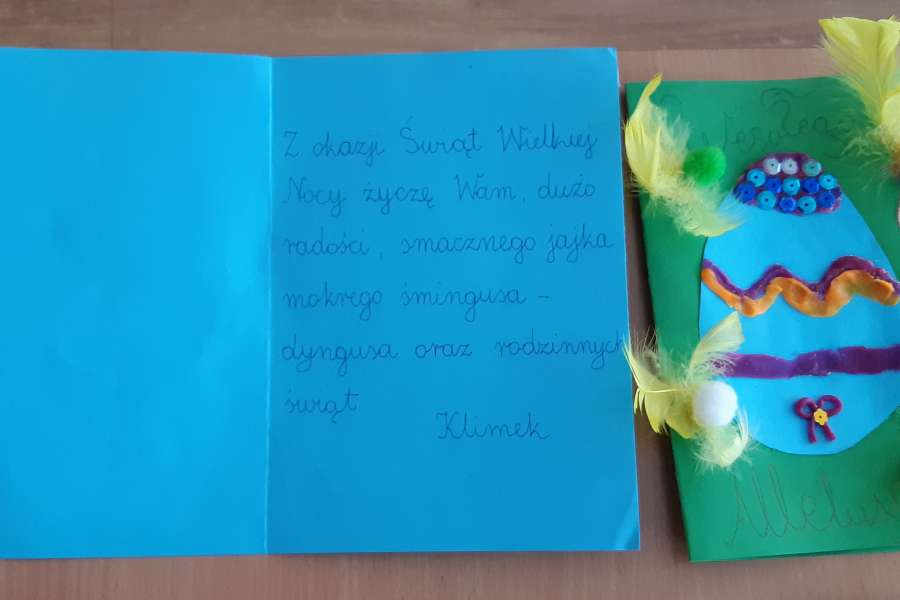 Z okazji Świąt Wielkiej
Nocy życzę Wam, dużo
radości, smacznego jajka
mokrego śmingusa -
dyngusa oraz rodzinnych
świąt
Klimek